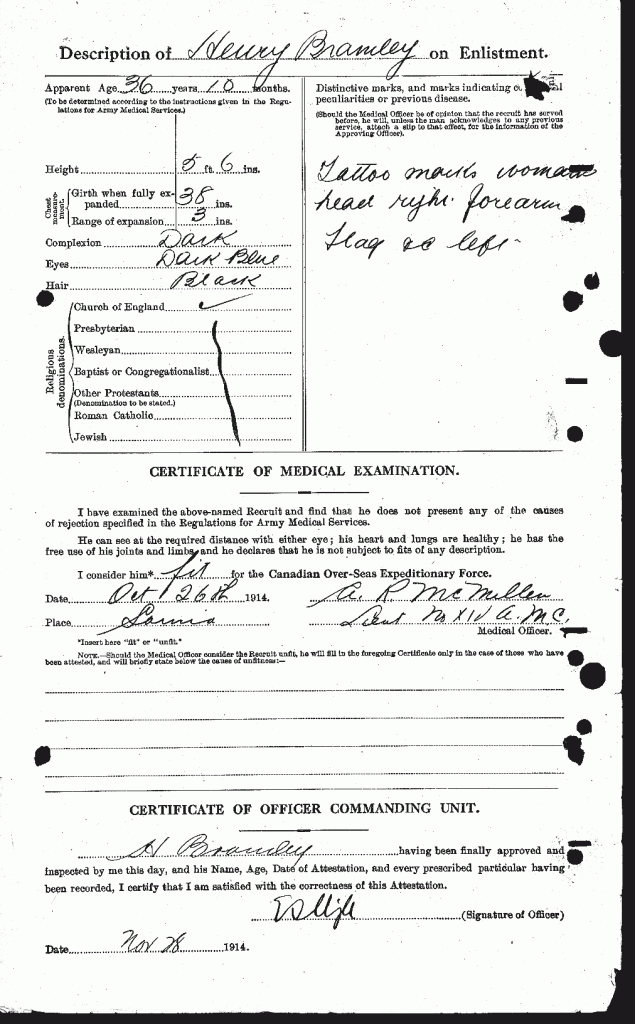 Description of Henry Bramley on Enlistment.
Apparent Age 36 years 10 months.
(To be determined according to the instructions given in the Regu-
lations for Army Medical Services.)
Height 5 ft. 6 ins.
Chest measurement. Girth when fully ex-
panded 38 ins.
Range of expansion 3 ins.
Complexion Dark
Eyes Dark Blue
Hair Black
Religious denominations.
Church of England ✓
Presbyterian
Wesleyan
Baptist or Congregationalist
Other Protestants
(Denomination to be stated.)
Roman Catholic
Jewish
Distinctive marks, and marks indicating
peculiarities or previous disease.
(Should the Medical Officer be of opinion that the recruit has served
before, he will, unless the man acknowledges to any previous
service, attach a slip to that effect, for the information of the
Approving Officer).
Tattoo marks womans
head right forearm
Flag do left
CERTIFICATE OF MEDICAL EXAMINATION.
I have examined the above-named Recruit and find that he does not present any of the causes
of rejection specified in the Regulations for Army Medical Services.
He can see at the required distance with either eye; his heart and lungs are healthy; he has the
free use of his joints and limbs, and he declares that he is not subject to fits of any description.
I consider him* fit for the Canadian Over-Seas Expeditionary Force.
Date Oct 26th 1914.
Place Sarnia
A. R. McMillen
Lieut No XIV A.M.C.
Medical Officer.
*Insert here "fit" or "unfit."
NOTE.—Should the Medical Officer consider the Recruit unfit, he will fill in the foregoing Certificate only in the case of those who have
been attested, and will briefly state below the cause of unfitness:—
CERTIFICATE OF OFFICER COMMANDING UNIT.
H Bramley having been finally approved and
inspected by me this day, and his Name, Age, Date of Attestation, and every prescribed particular having
been recorded, I certify that I am satisfied with the correctness of this Attestation.
(Signature of Officer)
Date Nov 28 1914.